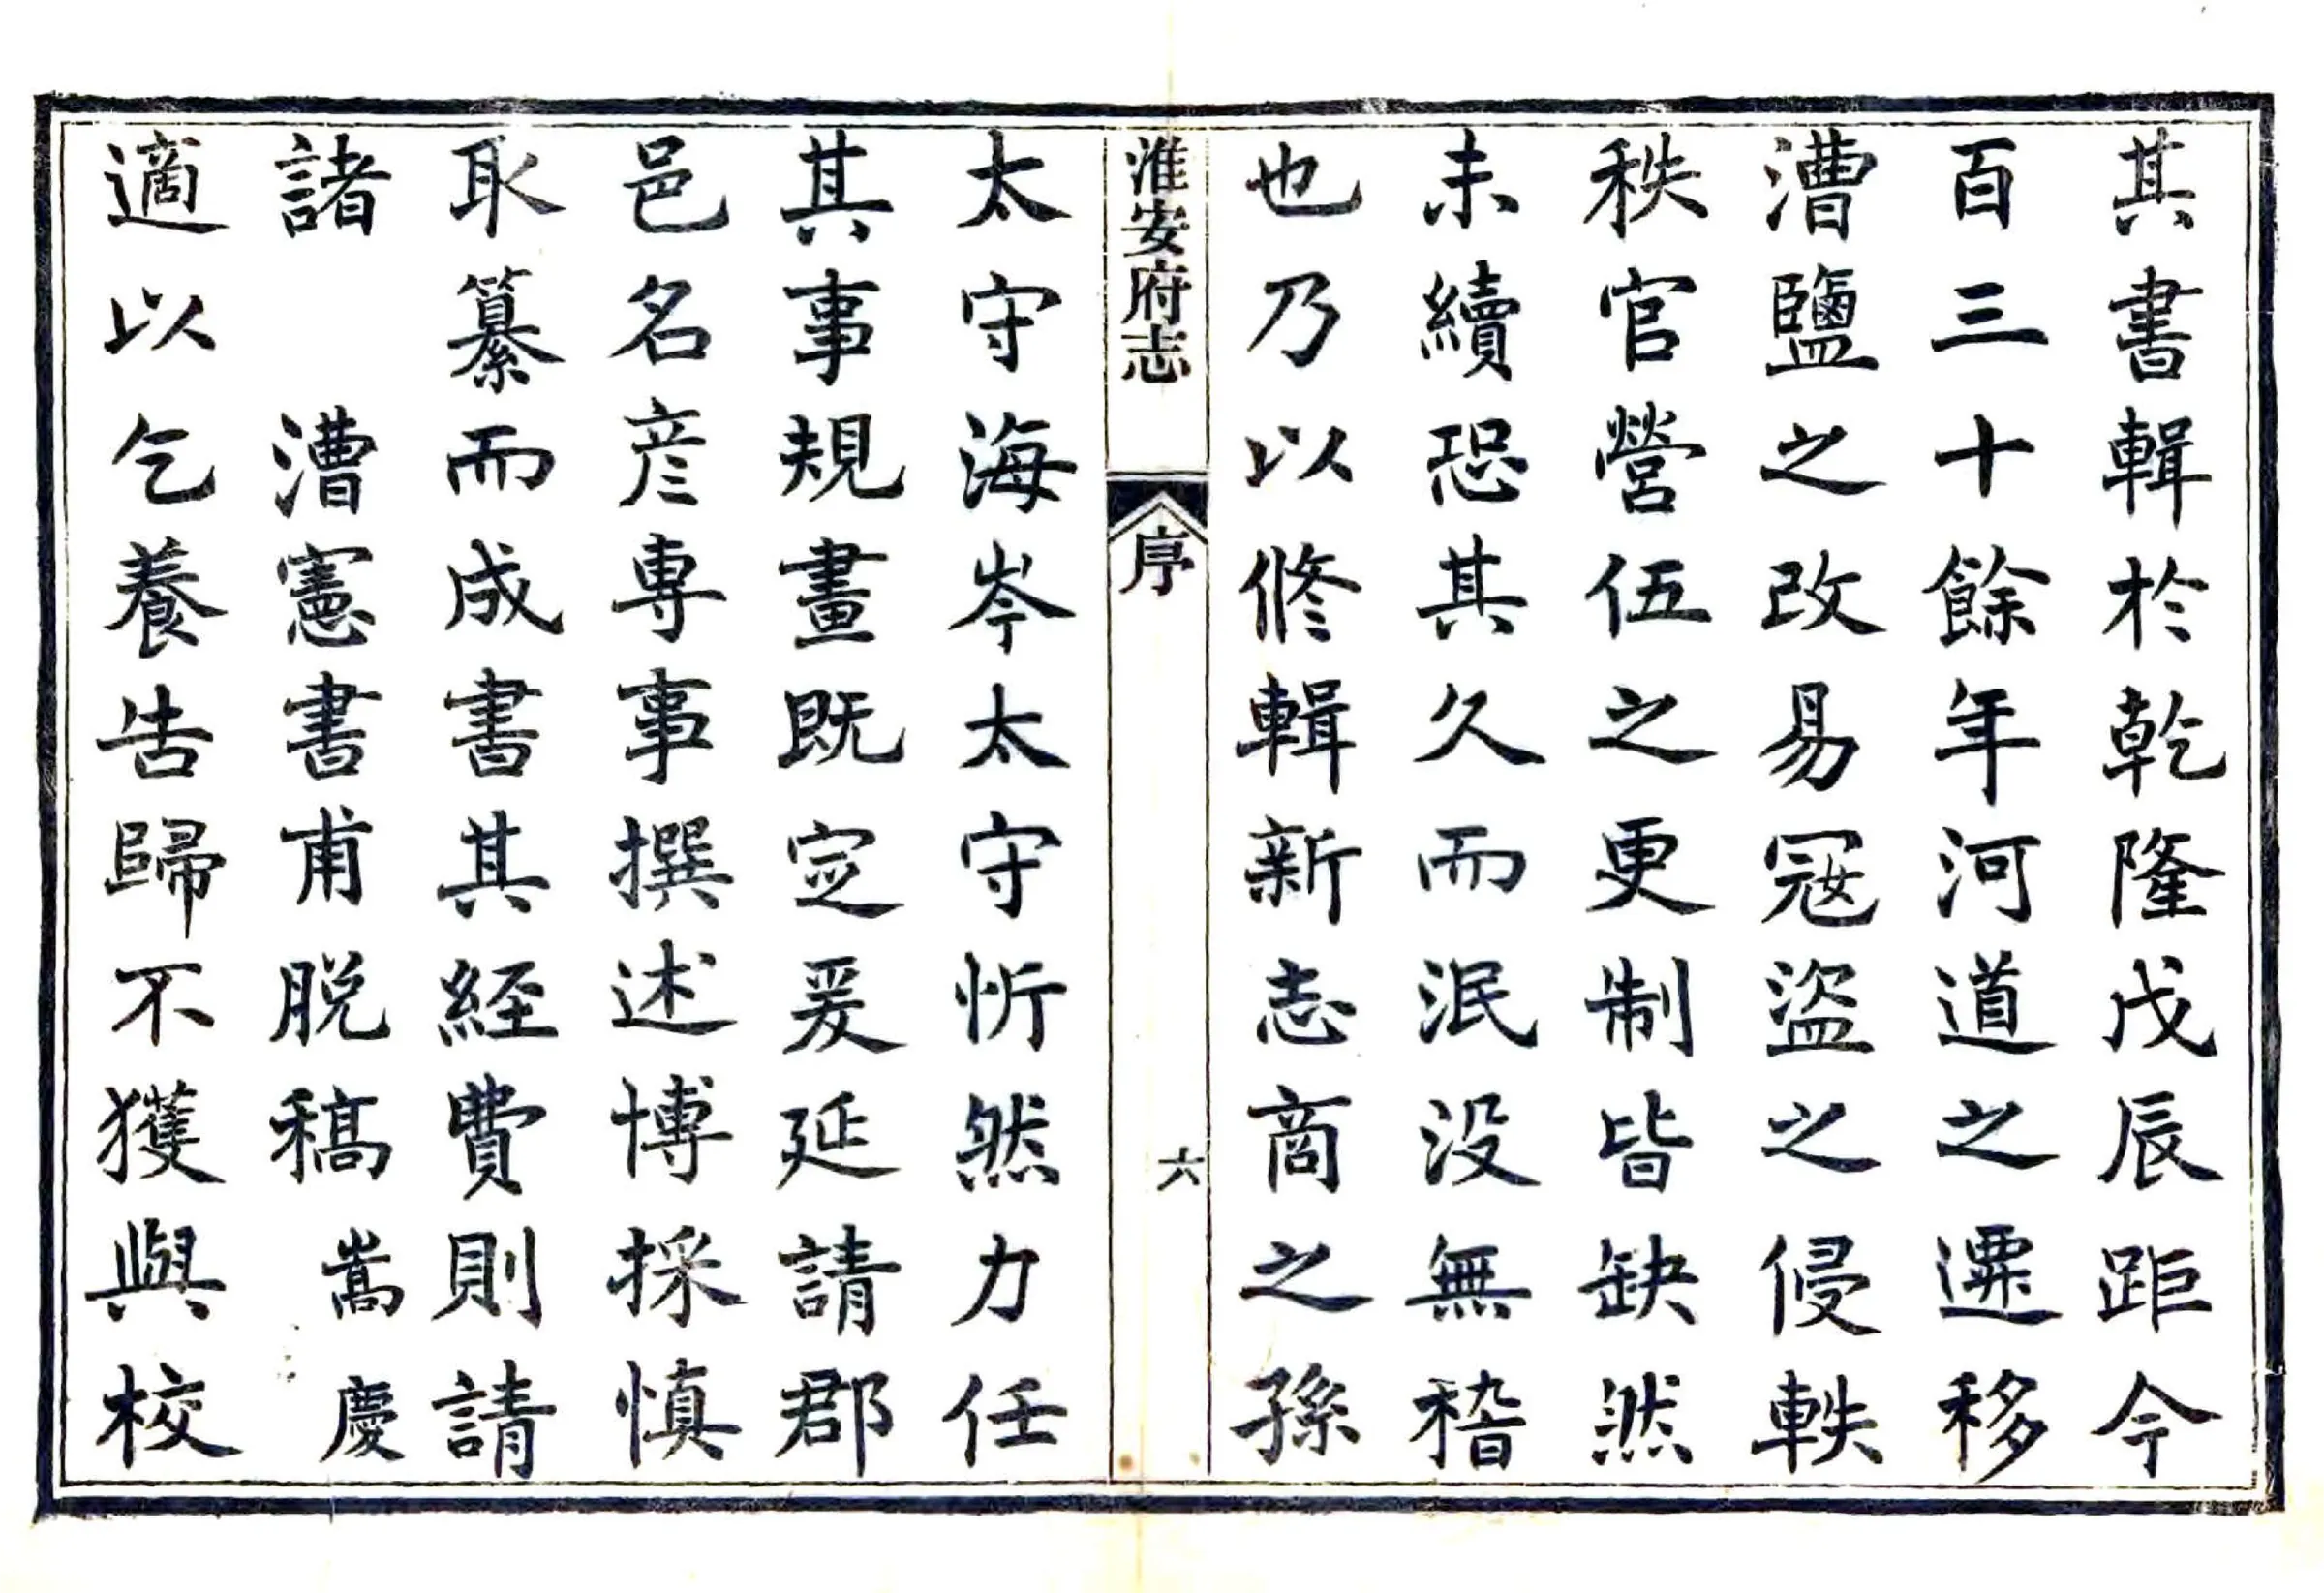 其書輯於乾隆戊辰距今
百三十餘年河道之遷移
漕鹽之改易冦盜之侵軼
秩官營伍之更制皆缺然
未續恐其久而泯没無稽
也乃以修輯新志商之孫
淮安府志
序
六
太守海岑太守忻然力任
其事規畫既定爰延請郡
邑名彦専事撰述博採慎
取纂而成書其経費則請
諸　漕憲書甫脱稿嵩慶
適以乞養告歸不獲與校